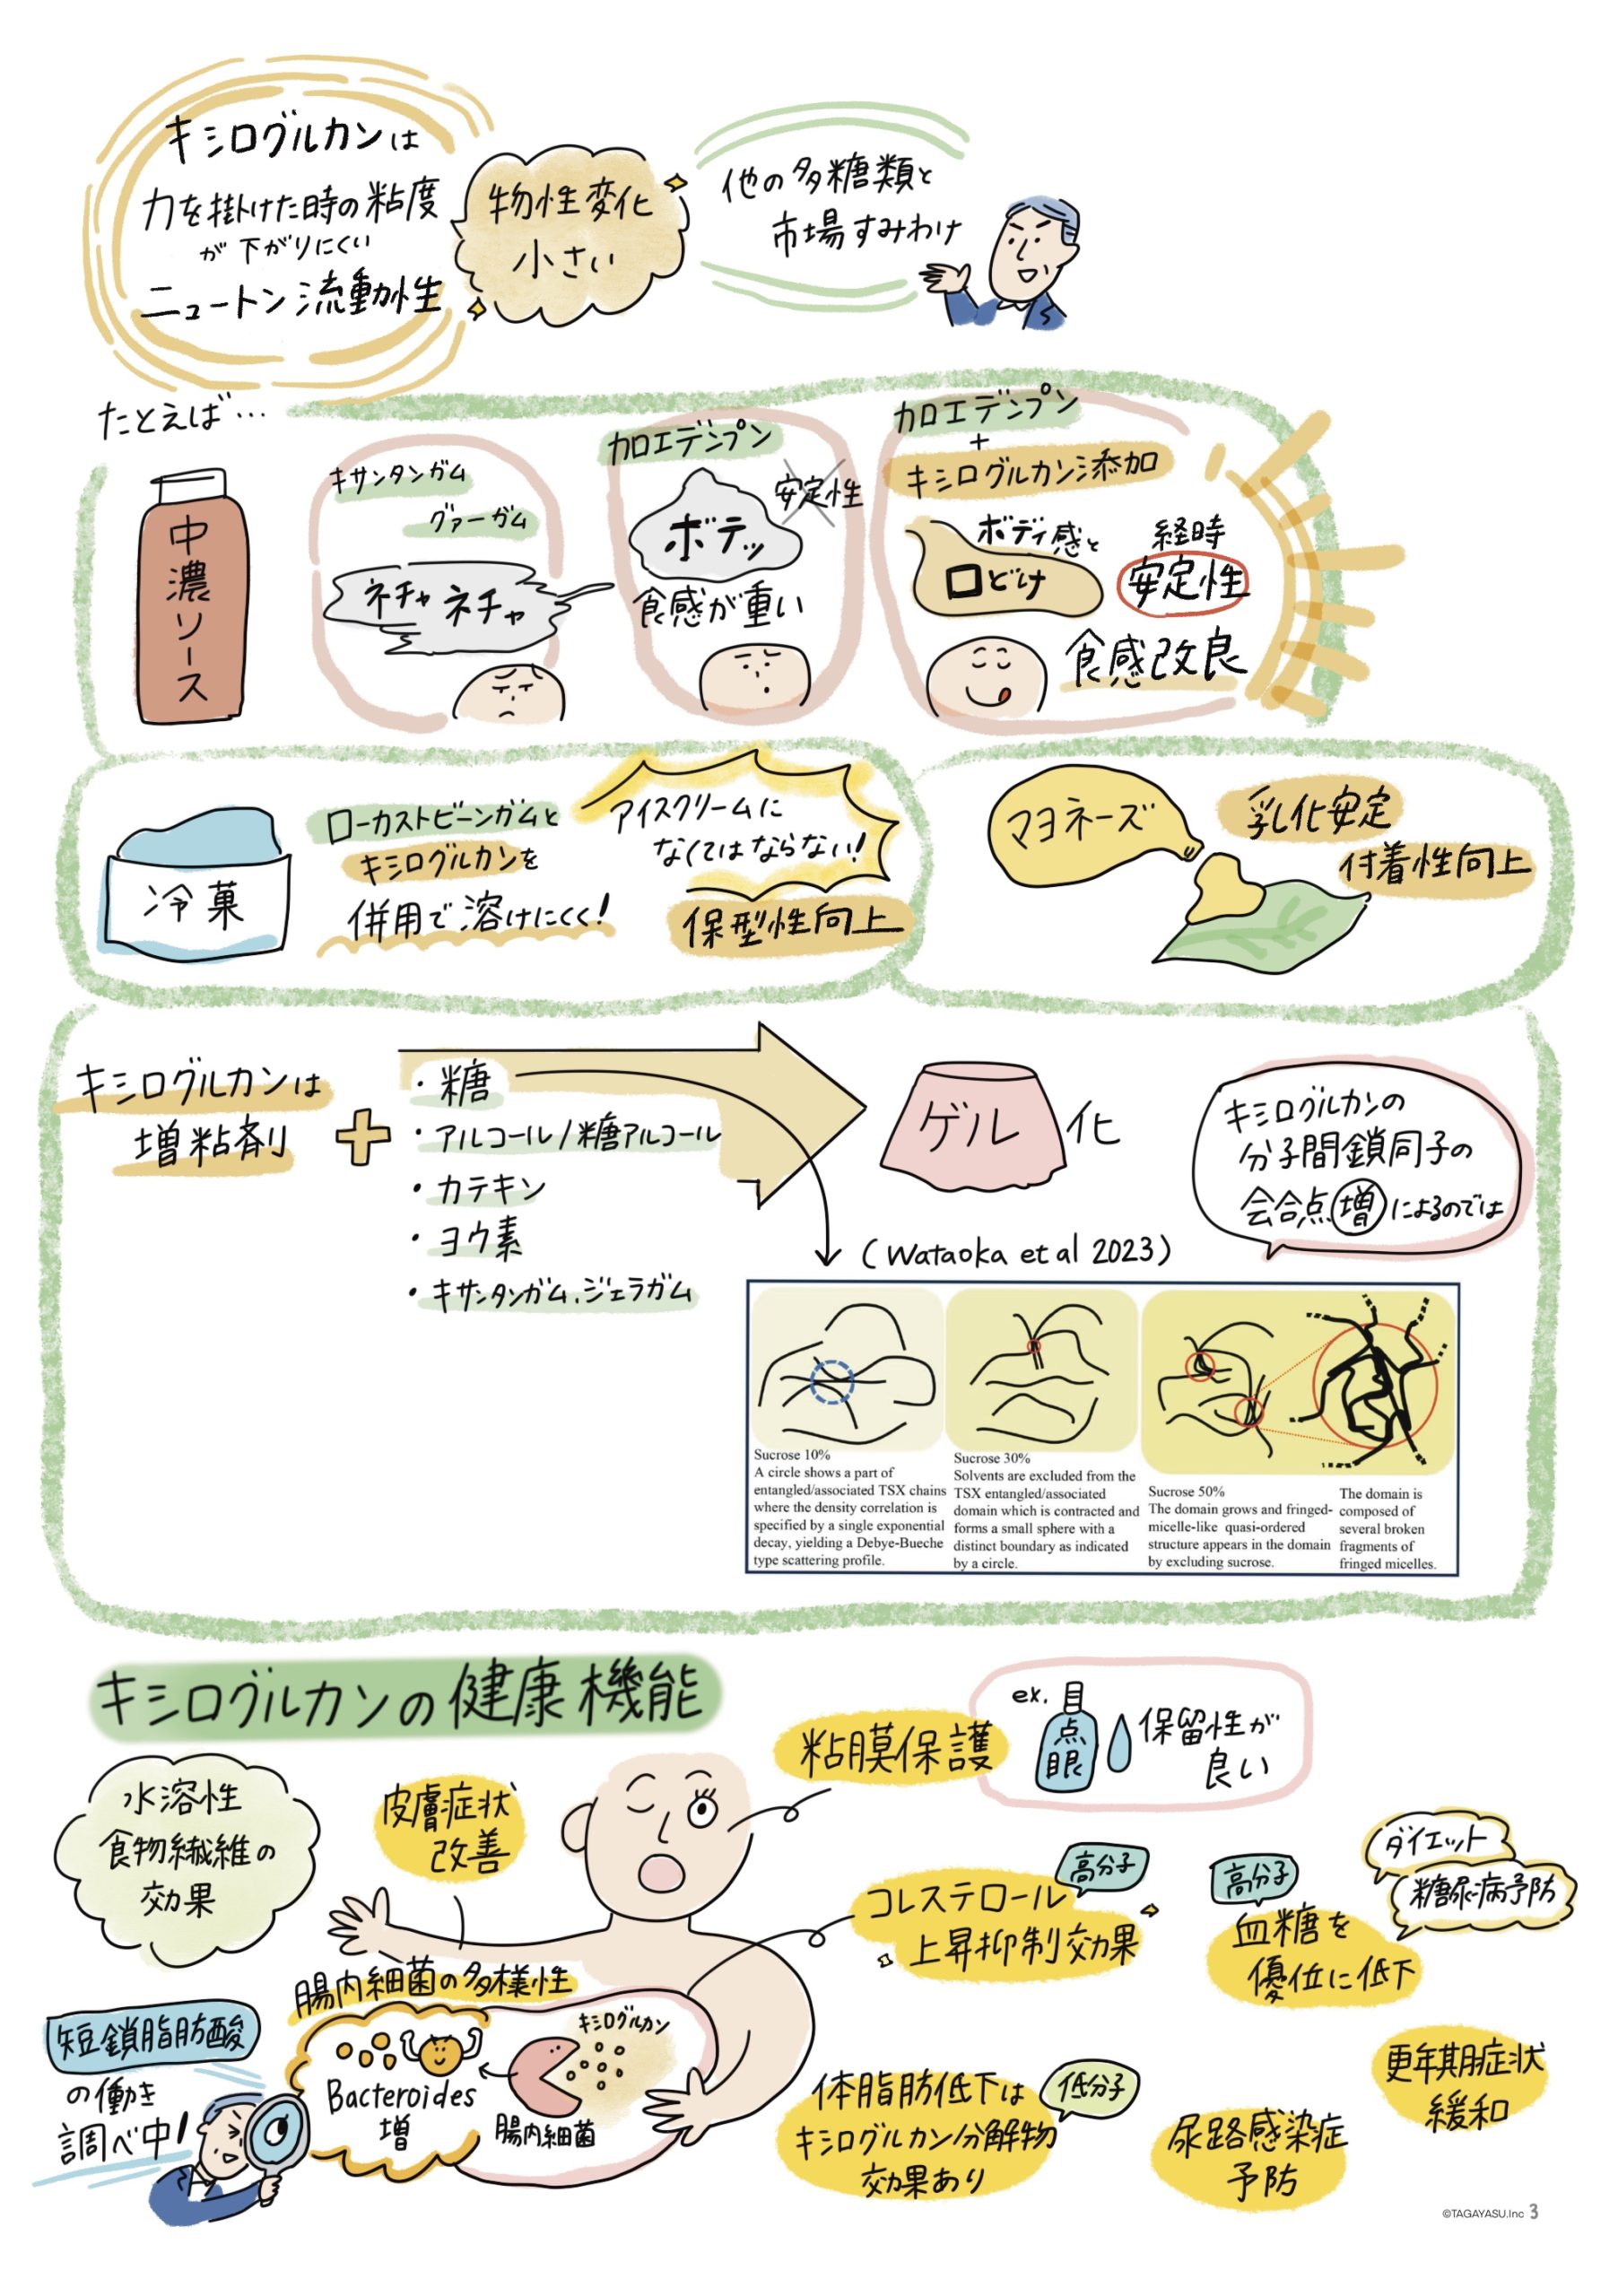 キシログルカンは
力を掛けた時の粘度
が下がりにくい
ニュートン流動性
物性変化
小さい
他の多糖類と
市場すみわけ
たとえば…
中濃ソース
キサンタンガム
グァーガム
ネチャネチャ
加工デンプン
安定性
ボテッ
食感が重い
加工デンプン
+
キシログルカン添加
ボディ感と
口どけ
経時
安定性
食感改良
冷菓
ローカストビーンガムと
キシログルカンを
併用で溶けにくく!
アイスクリームに
なくてはならない!
保型性向上
マヨネーズ
乳化安定
付着性向上
キシログルカンは
増粘剤
+
・糖
・アルコール/糖アルコール
・カテキン
・ヨウ素
・キサンタンガム、ジェラガム
ゲル化
キシログルカンの
分子間鎖同子の
会合点増によるのでは
(Wataoka et al 2023)
Sucrose 10%
A circle shows a part of
entangled/associated TSX chains
where the density correlation is
specified by a single exponential
decay, yielding a Debye-Bueche
type scattering profile.
Sucrose 30%
Solvents are excluded from the
TSX entangled/associated
domain which is contracted and
forms a small sphere with a
distinct boundary as indicated
by a circle.
Sucrose 50%
The domain grows and fringed-
micelle-like quasi-ordered
structure appears in the domain
by excluding sucrose.
The domain is
composed of
several broken
fragments of
fringed micelles.
キシログルカンの健康機能
水溶性
食物繊維の
効果
皮膚症状
改善
粘膜保護
ex.
点眼
保留性が
良い
高分子
コレステロール
上昇抑制効果
高分子
血糖を
優位に低下
ダイエット
糖尿病予防
腸内細菌の多様性
キシログルカン
Bacteroides
増
腸内細菌
短鎖脂肪酸
の働き
調べ中!
体脂肪低下は
キシログルカン分解物
効果あり
低分子
尿路感染症
予防
更年期症状
緩和
©TAGAYASU.Inc 3